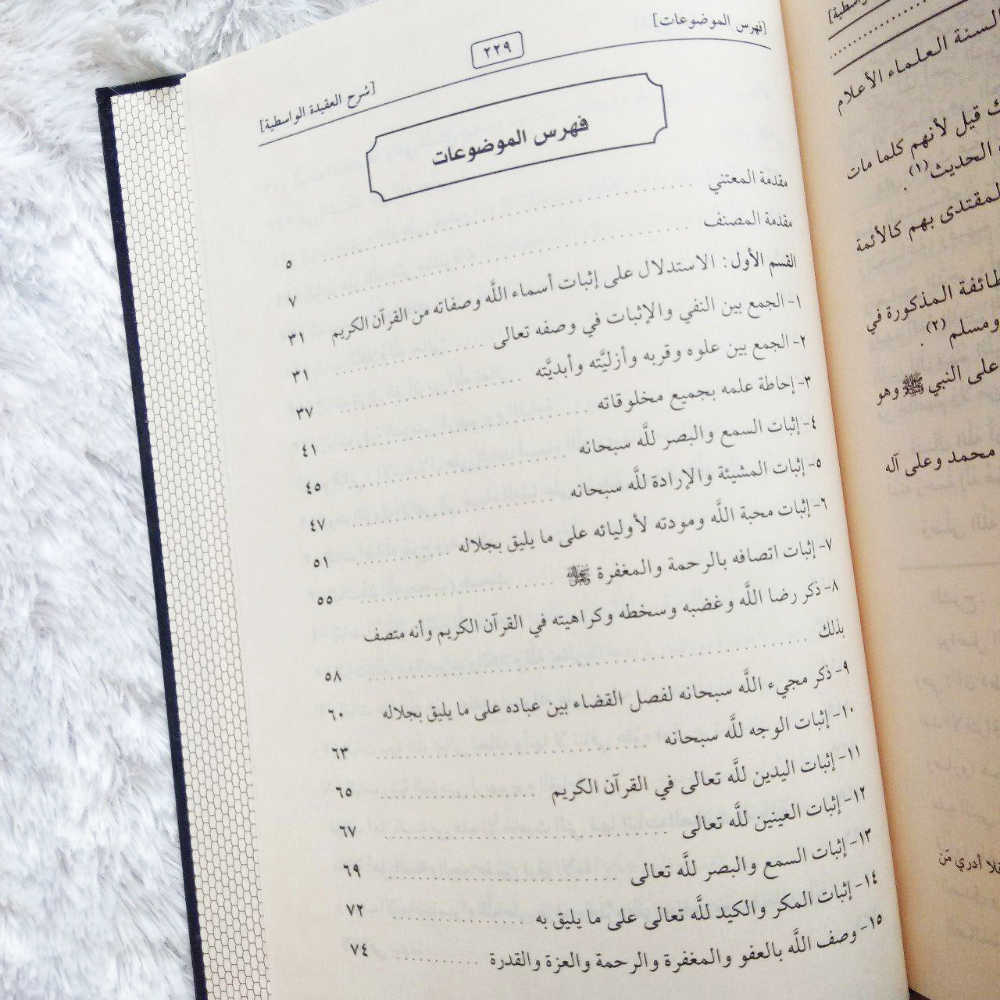 [فهرس الموضوعات]
٢٢٩
[شرح العقيدة الواسطية]
فهرس الموضوعات
مقدمة المعتني ٥
مقدمة المصنف ٧
القسم الأول: الاستدلال على إثبات أسماء اللَّه وصفاته من القرآن الكريم ٣١
١- الجمع بين النفي والإثبات في وصفه تعالى ٣١
٢- الجمع بين علوه وقربه وأزليَّته وأبديَّته ٣٧
٣- إحاطة علمه بجميع مخلوقاته ٤١
٤- إثبات السمع والبصر للَّه سبحانه ٤٥
٥- إثبات المشيئة والإرادة للَّه سبحانه ٤٧
٦- إثبات محبة اللَّه ومودته لأوليائه على ما يليق بجلاله ٥١
٧- إثبات اتصافه بالرحمة والمغفرة ٥٥
٨- ذكر رضا اللَّه وغضبه وسخطه وكراهيته في القرآن الكريم وأنه متصف
بذلك ٥٨
٩- ذكر مجيء اللَّه سبحانه لفصل القضاء بين عباده على ما يليق بجلاله ٦٠
١٠- إثبات الوجه للَّه سبحانه ٦٣
١١- إثبات اليدين للَّه تعالى في القرآن الكريم ٦٥
١٢- إثبات العينين للَّه تعالى ٦٧
١٣- إثبات السمع والبصر للَّه تعالى ٦٩
١٤- إثبات المكر والكيد للَّه تعالى على ما يليق به ٧٢
١٥- وصف اللَّه بالعفو والمغفرة والرحمة والعزة والقدرة ٧٤
الواسطية]
السنة العلماء الأعلام
قيل لأنهم كلما مات
الحديث(١).
المقتدى بهم كالأئمة
المذكورة في
ومسلم (٢).
على النبي ﷺ وهو
محمد وعلى آله
فلا أدري مَن